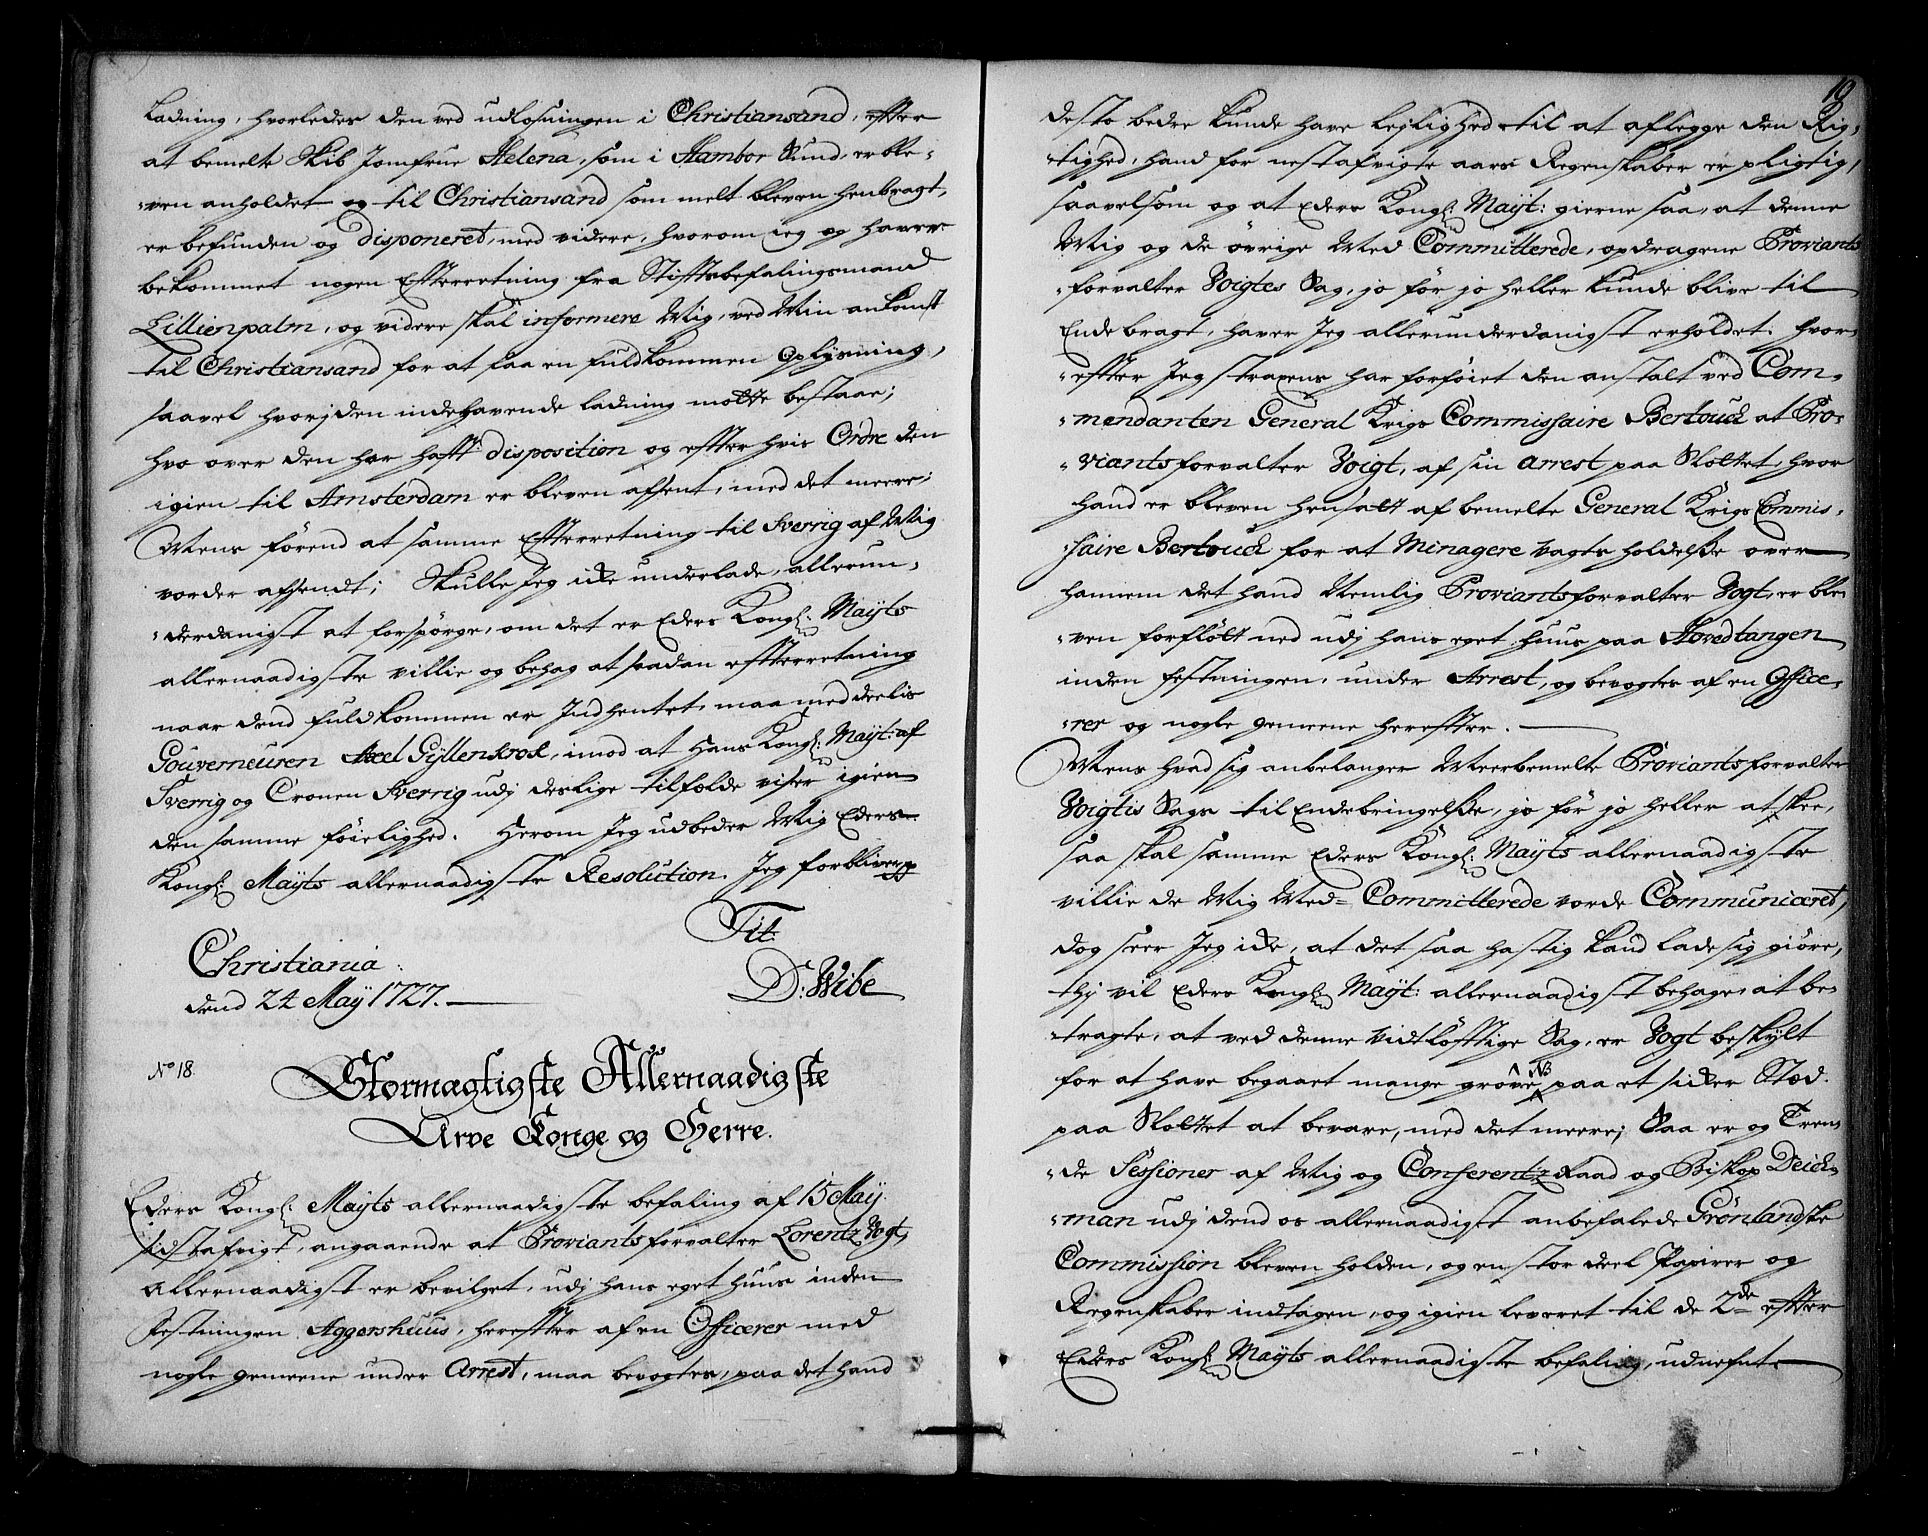 Ladning, hvorledes den ved udlosningen i Christiansand, efter
at bemelte Skib Jomfrue Helena, som i Hambor Sund, er ble-
-ven anholdet og til Christiansand som melt bleven henbragt,
er befunden og disponeret, med videre, hvorom ieg og haver
bekommet nogen Efterretning fra Stiftsbefalingsmand
Lillienpalm, og videre skal informere Mig, ved Min ankomst
til Christiansand for at faa en fuldkommen oplysning,
saavel hvorj den indehavende ladning motte bestaae;
hvo over den har hafft disposition og effter hvis Ordre den
igien til Amsterdam er bleven afsent, med det meere;
Mens førend at samme Efterretning til Sverrig af Mig
vorder afsendt; Skulle Jeg icke underlade, allerun-
-derdanigst at forspørge, om det er Eders Kongl: Mayts
allernaadigste villie og behag at saadan effterretning
naar dend fuldkommen er Indhentet, maa meddeelis
Gouverneuren Axel Gyllenkrok, imod at Hans Kongl: Mayt: af
Sverrig og Cronen Sverrig udj deslige tilfælde viser igien
den samme føielighed. Herom Jeg udbeder Mig Eders
Kongl: Mayts allernaadigste Resolution. Jeg forbliver
Tit:
Christiania:
dend 24 May 1727.
D: Wibe
No 18.
Stormægtigste Allernaadigste
Arve Konge og Herre.
Eders Kongl: Mayts allernaadigste befaling af 15 May
sidstafvigt, angaaende at Proviantsforvalter Lorentz Vogt,
allernaadigst er bevilget, udj hans eget huus inden
Festningen Aggershuus, hereffter af en Officerer med
nogle gemeene under Arrest, maa bevogtes, paa det hand
19
desto bedre kunde have lejlighed til at aflegge den Rig-
-tighed, hand for nestafvigte aars Regenskaber er pligtig,
saavelsom og at Eders Kongl: Mayt: gierne saa, at denne
Mig og de øvrige Med Committerede, opdragene Proviants
-forvalter Voigtes Sag, jo før jo heller kunde blive til
Ende bragt, haver Jeg allerunderdanigst erholdet. hvor-
-effter Jeg straxens har forføiet den anstalt ved Com-
-mendanten General Krigs Commissaire Bertouch at Pro-
-viantsforvalter Voigt, af sin arrest paa Slottet, hvor
hand er bleven hensatt af bemelte General Krigs Commis-
-saire Bertouch for at Minagere vagts holdelsse over
hannem det hand Nemlig Proviantsforvalter Vogt, er ble-
-ven forfløtt ned udj hans eget huus paa Hovedtangen
inden festningen, under Arrest, og bevogtes af en Office-
-rer og nogle gemeene hereffter.
Mens hvad sig anbelanger Meerbemelte Proviantsforvalter
Voigtis Sags til Endebringelsse, jo før jo heller at skee,
saa skal samme Eders Kongl: Mayts allernaadigste
villie de Mig Med= Committerede vorde Communiceret,
dog seer Jeg icke, at det saa hastig kand lade sig giøre,
thj vil Eders Kongl: Mayt: allernaadigst behage at be-
-tragte, at ved denne vidtløfftige Sag, er Vogt beskylt
for at have begaaet mange grove NB paa et sicker Stæd.
paa Slottet at bevare, med det meere; Saa er og Tren-
-de Sessioner af Mig og Conferentz Raad og Biskop Deich-
-man udj dend os allernaadigst anbefalede Grønlandske
Commission bleven holden, og en stor deel Papirer og
Regenskaber indtagen, og igien leveret til de 2de effter
Eders Kongl: Mayts allernaadigste befaling, udnefnte